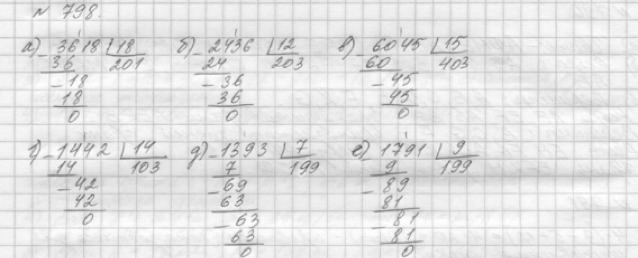 № 798.
а) 3618 |18   б) 2436 |12   в) 6045 |15
36 201   24 203   60 403
-18   -36   -45
18   36   45
0   0   0
г) -1442 |14   д) -1393 |7   е) 1791 |9
14 103   7 199   9 199
-42   -69   -89
42   63   81
0   -63   -81
63   81
0   0